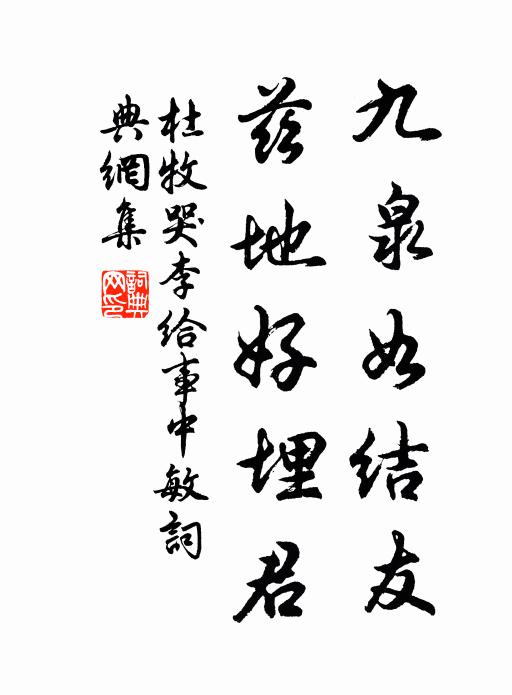 九泉如结友
茲地好埋君
杜牧哭李给事中敏詞
典網集
詞典网印